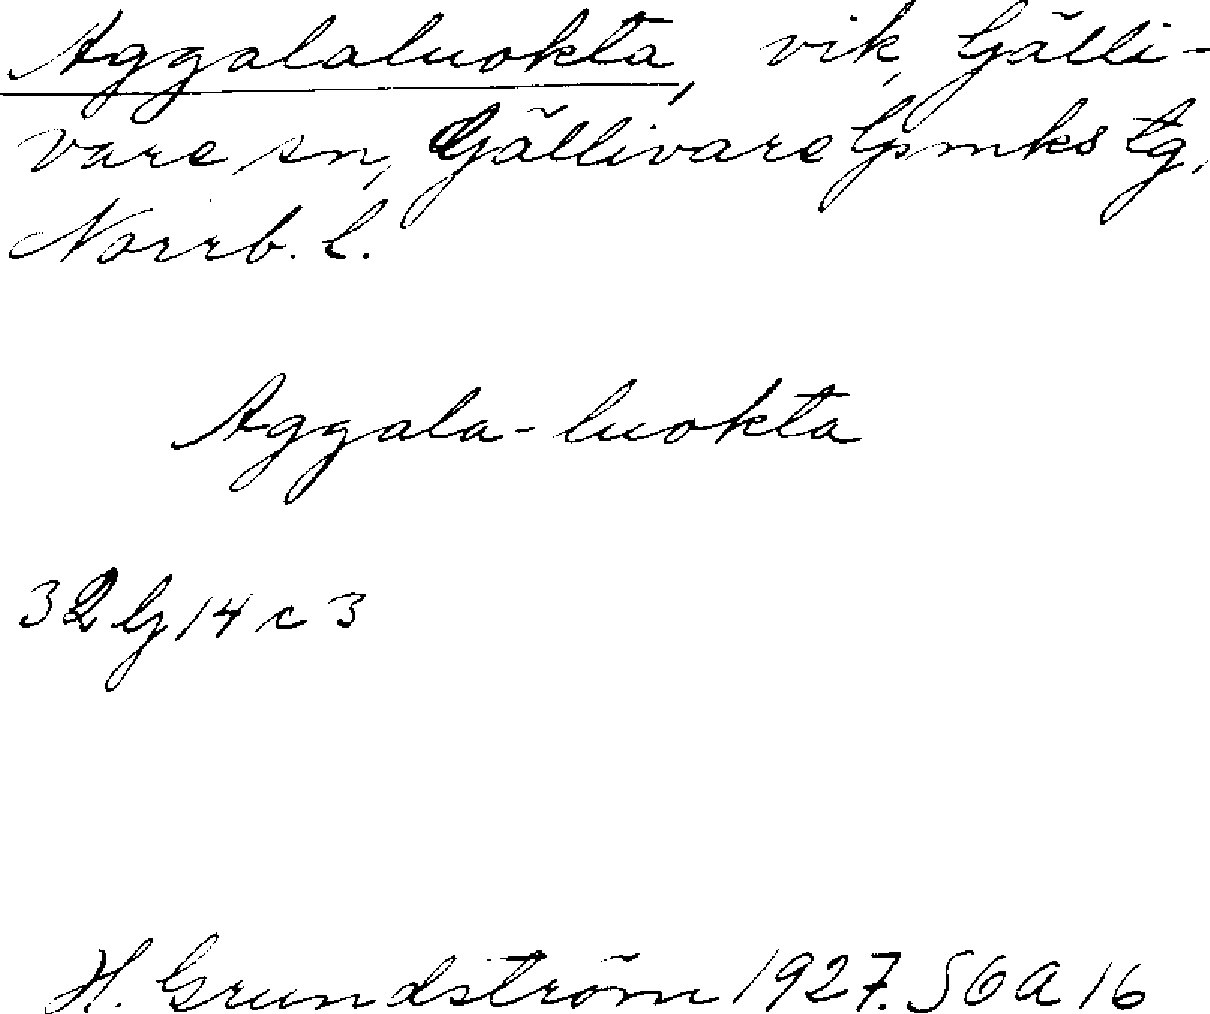 Aggalaluokta, vik, Gälli-
vare sn, Gällivare lpmks tg,
Norrb. l.
Aggala-luokta
32 G 14 c 3
H. Grundström 1927. SOA 16